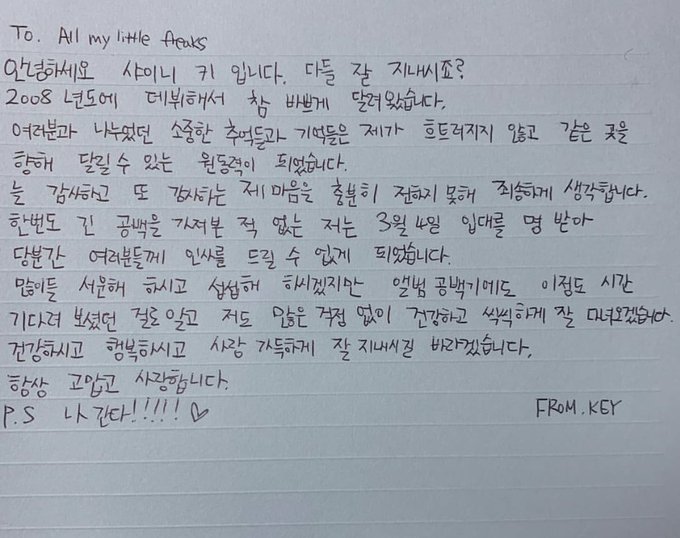 To. All my little freaks
안녕하세요 샤이니 키 입니다. 다들 잘 지내시죠?
2008년도에 데뷔해서 참 바쁘게 달려왔습니다.
여러분과 나누었던 소중한 추억들과 기억들은 제가 흐트러지지 않고 같은 곳을
향해 달릴 수 있는 원동력이 되었습니다.
늘 감사하고 또 감사하는 제 마음을 충분히 전하지 못해 죄송하게 생각합니다.
한번도 긴 공백을 가져본 적 없는 저는 3월 4일 입대를 명 받아
당분간 여러분들께 인사를 드릴 수 없게 되었습니다.
많이들 서운해 하시고 섭섭해 하시겠지만 앨범 공백기에도 이정도 시간
기다려 보셨던 걸로 알고 저도 많은 걱정 없이 건강하고 씩씩하게 잘 다녀오겠습니다.
건강하시고 행복하시고 사랑 가득하게 잘 지내시길 바라겠습니다.
항상 고맙고 사랑합니다.
P.S 나 간다!!!!!! ♡
FROM. KEY